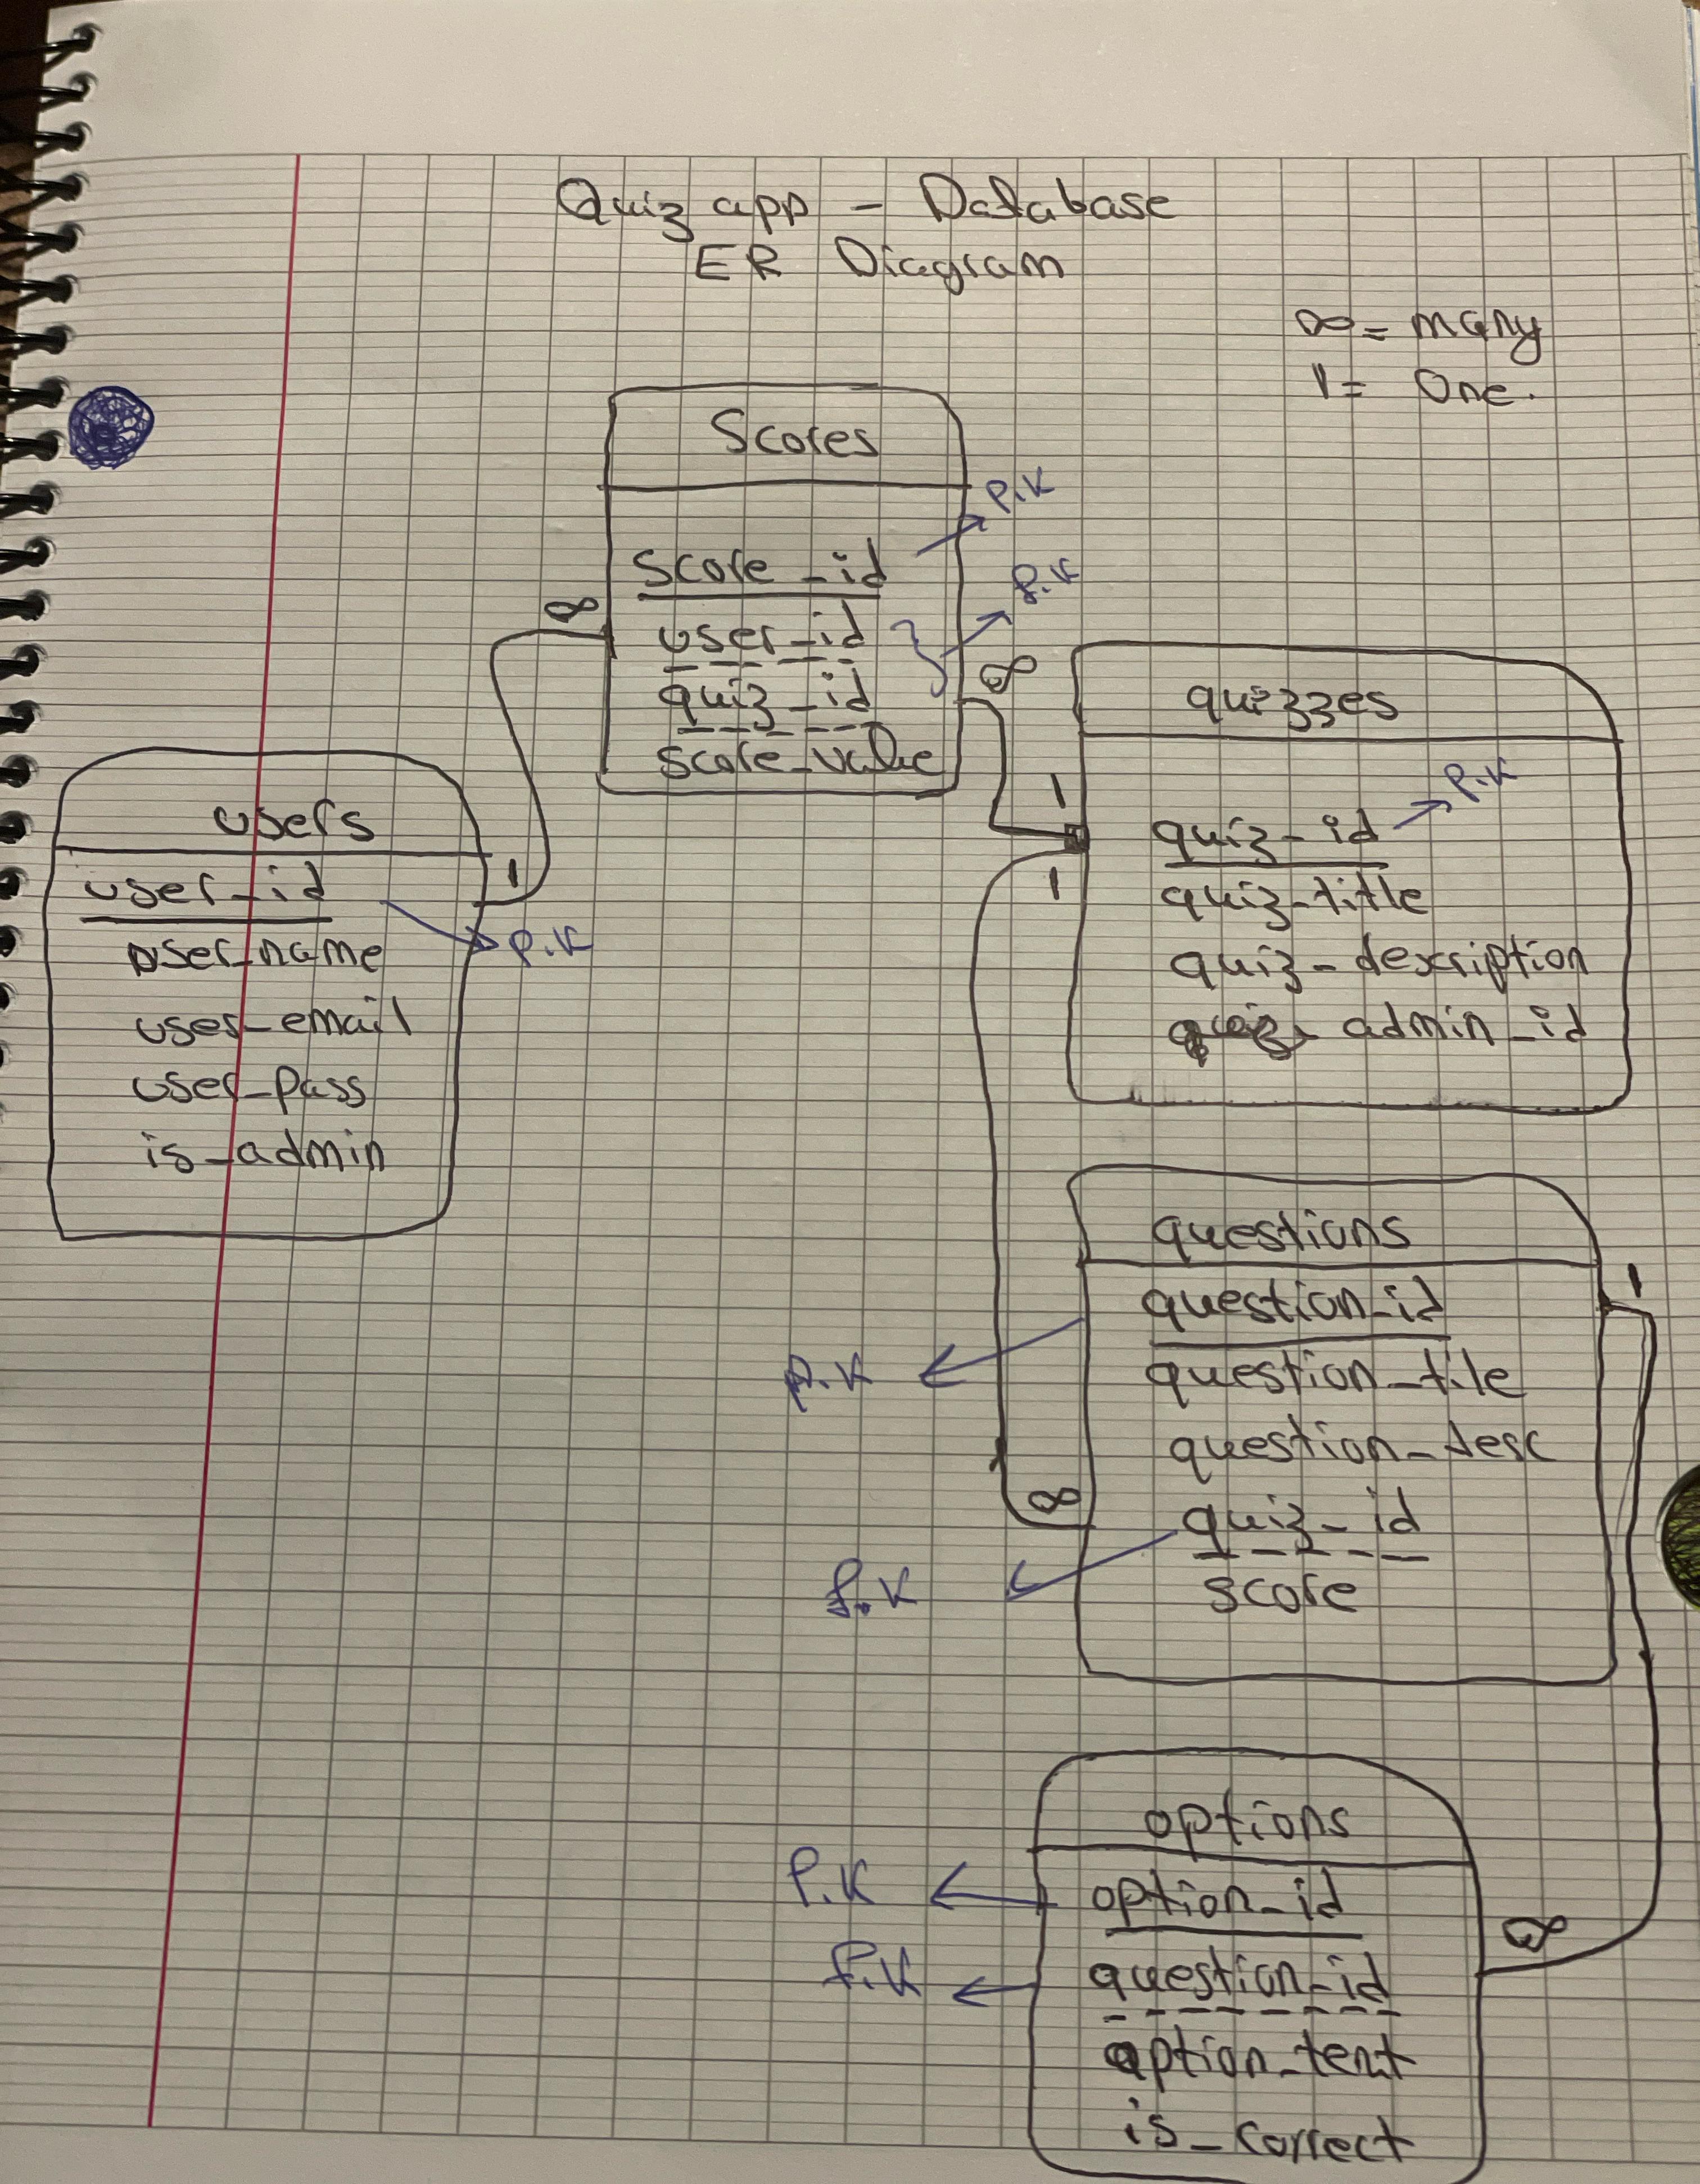 Quiz app - Database
ER Diagram
∞ = many
1 = One.
Scores
score_id
P.K
user_id
quiz_id
f.K
score_value
∞
∞
users
user_id
P.K
user_name
user_email
user_pass
is_admin
1
quizzes
1
quiz-id
P.K
1
quiz-title
quiz-description
admin_id
questions
question_id
1
P.K
question_tile
question_desc
quiz-id
∞
f.K
score
options
P.K
option_id
∞
f.K
question_id
option_text
is_correct